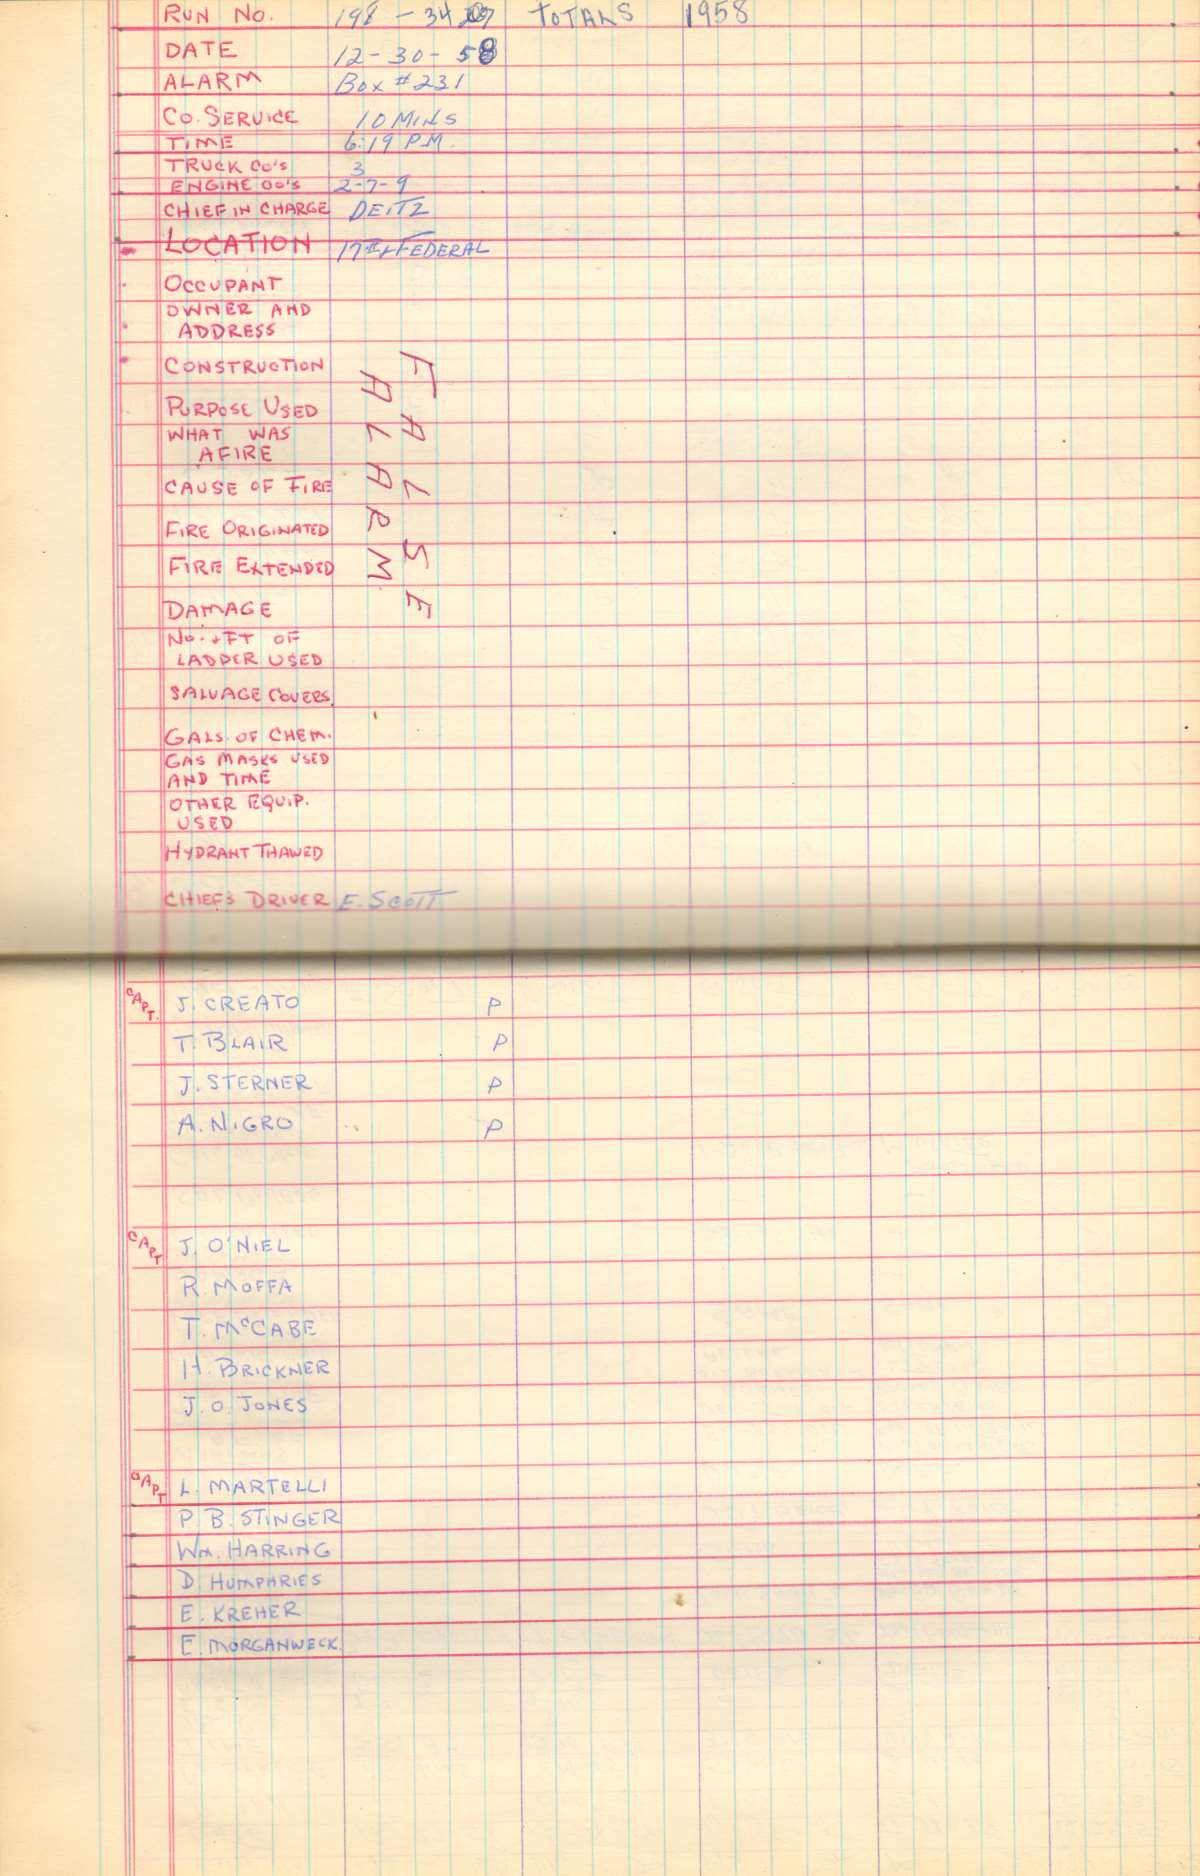 RUN NO. 198 - 34 TOTALS 1958
DATE 12-30-58
ALARM BOX #231
CO. SERVICE 10 MINS
TIME 6:19 P.M.
TRUCK CO'S 3
ENGINE CO'S 2-7-9
CHIEF IN CHARGE DEITZ
LOCATION 17TH + FEDERAL
OCCUPANT
OWNER AND
ADDRESS
CONSTRUCTION
PURPOSE USED
WHAT WAS
AFIRE
CAUSE OF FIRE
FIRE ORIGINATED
FIRE EXTENDED
DAMAGE
FALSE
ALARM
NO. + FT OF
LADDER USED
SALVAGE COVERS
GALS. OF CHEM.
GAS MASKS USED
AND TIME
OTHER EQUIP.
USED
HYDRANT THAWED
CHIEFS DRIVER E. SCOTT
CAPT. J. CREATO P
T. BLAIR P
J. STERNER P
A. NIGRO P
CAPT J. O'NIEL
R. MOFFA
T. McCABE
H. BRICKNER
J. O. JONES
CAPT L. MARTELLI
P. B. STINGER
WM. HARRING
D. HUMPHRIES
E. KREHER
E. MORGANWECK.